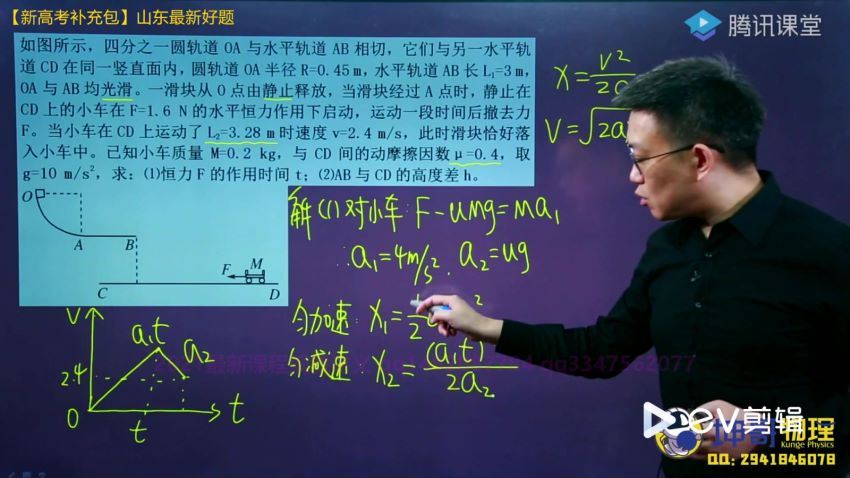 【新高考补充包】山东最新好题
腾讯课堂
如图所示，四分之一圆轨道 OA 与水平轨道 AB 相切，它们与另一水平轨
道 CD 在同一竖直面内，圆轨道 OA 半径 R=0.45 m，水平轨道 AB 长 L₁=3 m，
OA 与 AB 均光滑。一滑块从 O 点由静止释放，当滑块经过 A 点时，静止在
CD 上的小车在 F=1.6 N 的水平恒力作用下启动，运动一段时间后撤去力
F。当小车在 CD 上运动了 L₂=3.28 m 时速度 v=2.4 m/s，此时滑块恰好落
入小车中。已知小车质量 M=0.2 kg，与 CD 间的动摩擦因数 μ=0.4，取
g=10 m/s²，求：⑴恒力 F 的作用时间 t；⑵AB 与 CD 的高度差 h。
O
A
B
F
M
C
D
X=
V=
解 (1) 对小车: F-uMg=Ma₁
∴a₁=4m/s². a₂=ug
匀加速: X₁=
匀减速: X₂=
(a₁t)
2a₂
V
a₁t
a₂
2.4
0
t
t
EV剪辑
坤哥物理
Kunge Physics
QQ: 2941846078